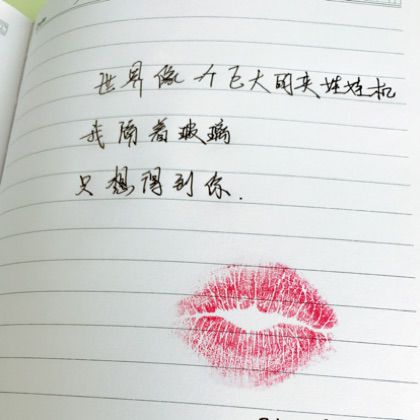 世界像个巨大的夹娃娃机
我隔着玻璃
只想得到你.